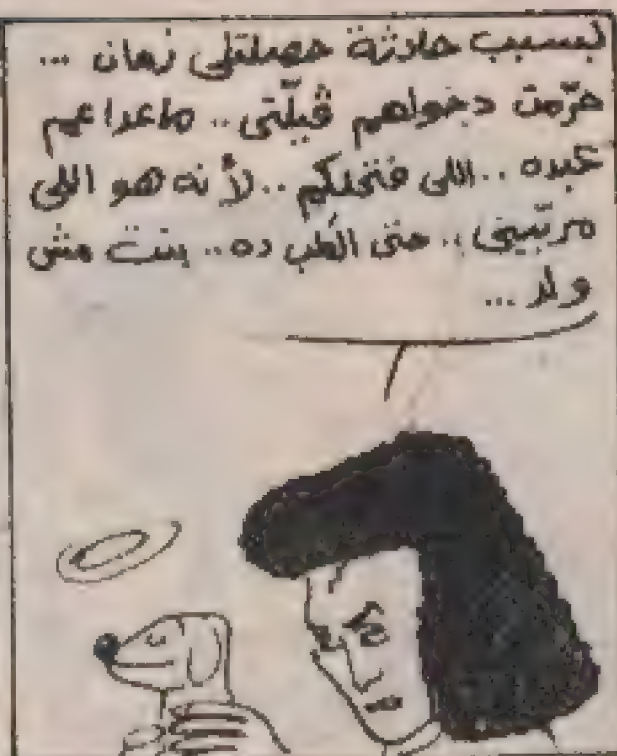 لبسبب حادثة حصلتلي زمان ...
حرّمت دخولهم ڤيلّتي.. ماعدا عم
عبده.. اللي فتحلكم.. لأنه هو اللي
مربّيني.. حتى الكلب ده.. بنت مش
ولد ...